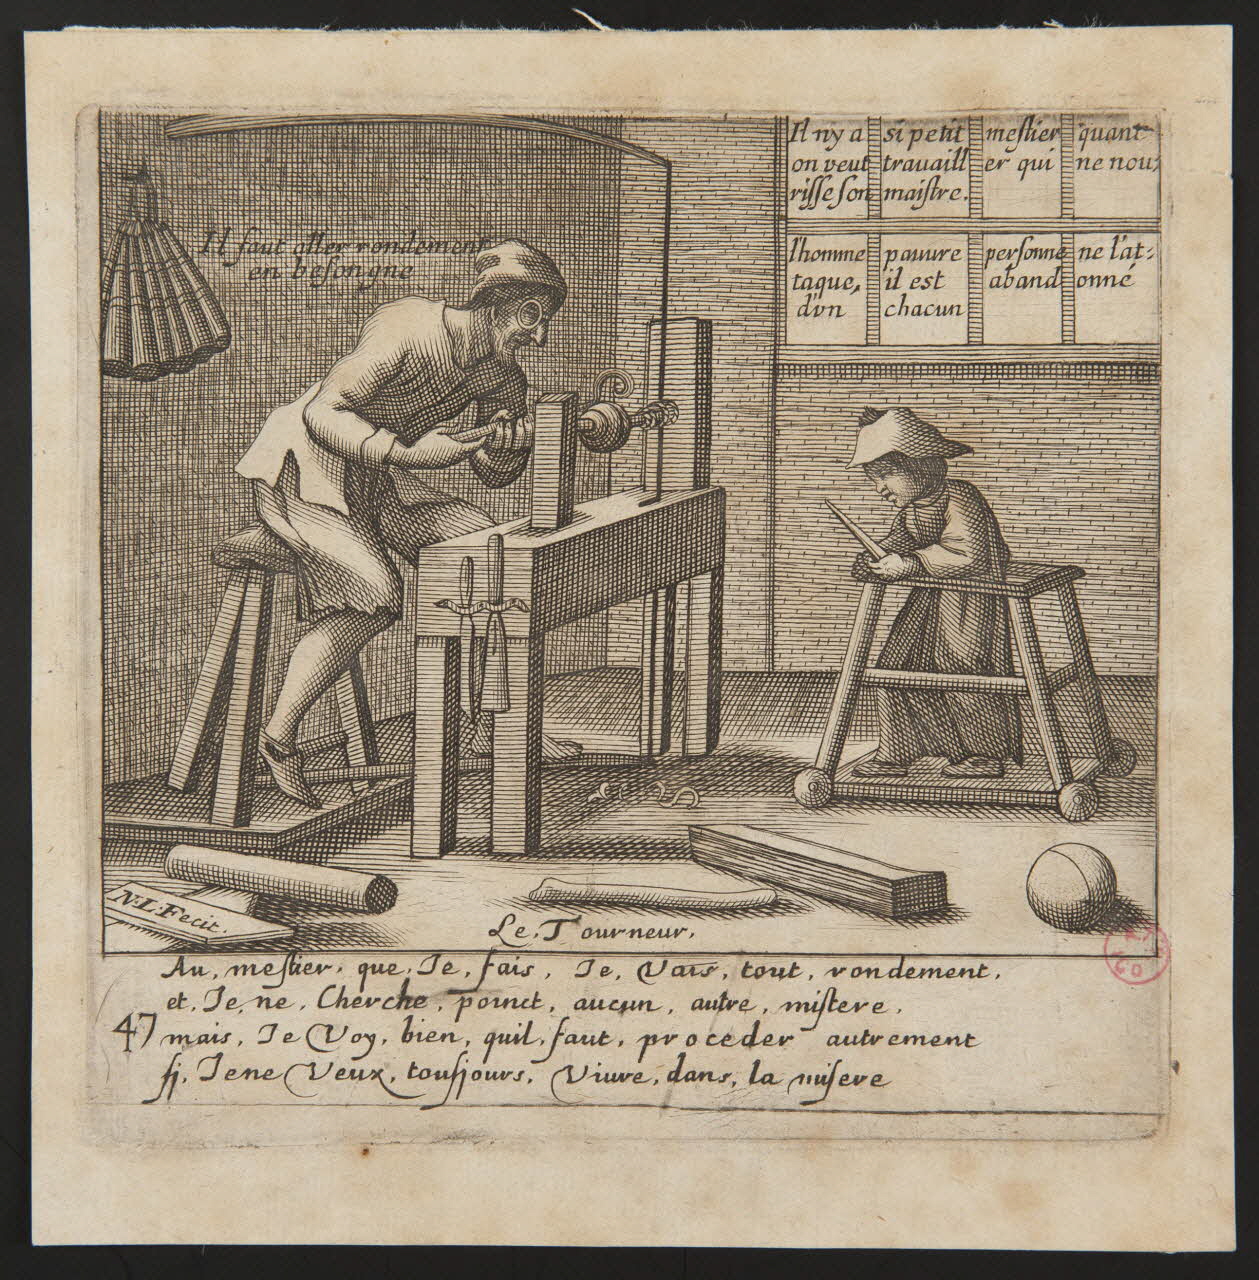 Il ny a si petit mestier quant
on veut travaill er qui ne nou,
risse son maistre.
l'homme pauure personne ne l'at-
taque, il est aband onné
d'vn chacun
Il faut aller rondement
en besongne
N.L.Fecit.
Le, Tourneur,
Au, mestier, que, Je, fais, Je, Vais, tout, rondement,
et, Je, ne, Cherche, poinct, aucun, autre, mistere,
47 mais, Je Voy, bien, quil, faut, proceder autrement
sj, Jene Veux, tousjours, Viure, dans, la misere